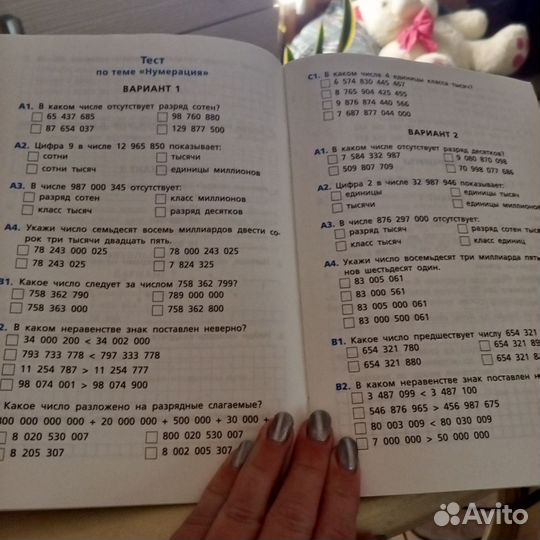 Тест
по теме «Нумерация»
ВАРИАНТ 1
А1. В каком числе отсутствует разряд сотен?
65 437 685
98 760 880
87 654 037
129 877 500
А2. Цифра 9 в числе 12 965 850 показывает:
сотни
тысячи
сотни тысяч
единицы миллионов
А3. В числе 987 000 345 отсутствует:
разряд сотен
класс миллионов
класс тысяч
разряд десятков
А4. Укажи число семьдесят восемь миллиардов двести со-
рок три тысячи двадцать пять.
78 243 000 025
78 000 243 025
78 243 025
7 824 325
В1. Какое число следует за числом 758 362 799?
758 362 790
789 000 000
758 363 000
758 362 800
2. В каком неравенстве знак поставлен неверно?
34 000 200 < 34 002 000
793 733 778 < 797 333 778
11 254 787 > 11 254 777
98 074 001 > 98 074 900
Какое число разложено на разрядные слагаемые?
000 000 000 + 20 000 000 + 500 000 + 30 000 +
8 020 530 007
800 020 530 007
8 205 307
8 002 005 307
С1. В каком числе 4 единицы класса тысяч?
6 574 830 445 467
8 765 904 425 455
9 876 874 440 566
7 687 877 044 000
ВАРИАНТ 2
А1. В каком числе отсутствует разряд десятков?
7 584 332 987
9 080 870 098
509 807 709
70 998 077 686
А2. Цифра 2 в числе 32 987 946 показывает:
единицы
единицы тысяч
тысячи
единицы миллионов
А3. В числе 876 297 000 отсутствует:
разряд тысяч
разряд сотен тыся
класс тысяч
класс единиц
А4. Укажи число восемьдесят три миллиарда пять
нов шестьдесят один.
83 005 061
83 000 561
83 005 000 061
83 000 500 061
В1. Какое число предшествует числу 654 321
654 321 780
654 321 89
654 321 880
654 321
В2. В каком неравенстве знак поставлен не
3 487 099 < 3 487 100
546 876 965 > 456 987 675
80 003 009 < 80 030 009
7 000 000 > 50 000 000
Avito